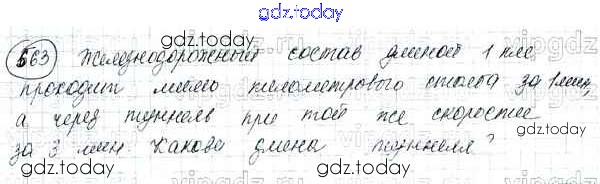 gdz.today
563 Железнодорожный состав длиной 1 км
gdz.today
проходит мимо километрового столба за 1 мин,
gdz.today
а через туннель при той же скорости
gdz.today
за 3 мин. Какова длина туннеля?
gdz.today
gdz.today